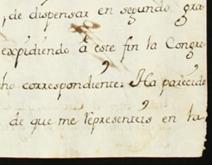 de dispensar en segundo gra
expidiendo à este fin la Congre
ho correspondiente. Ha parecido
de que me representeis en ha